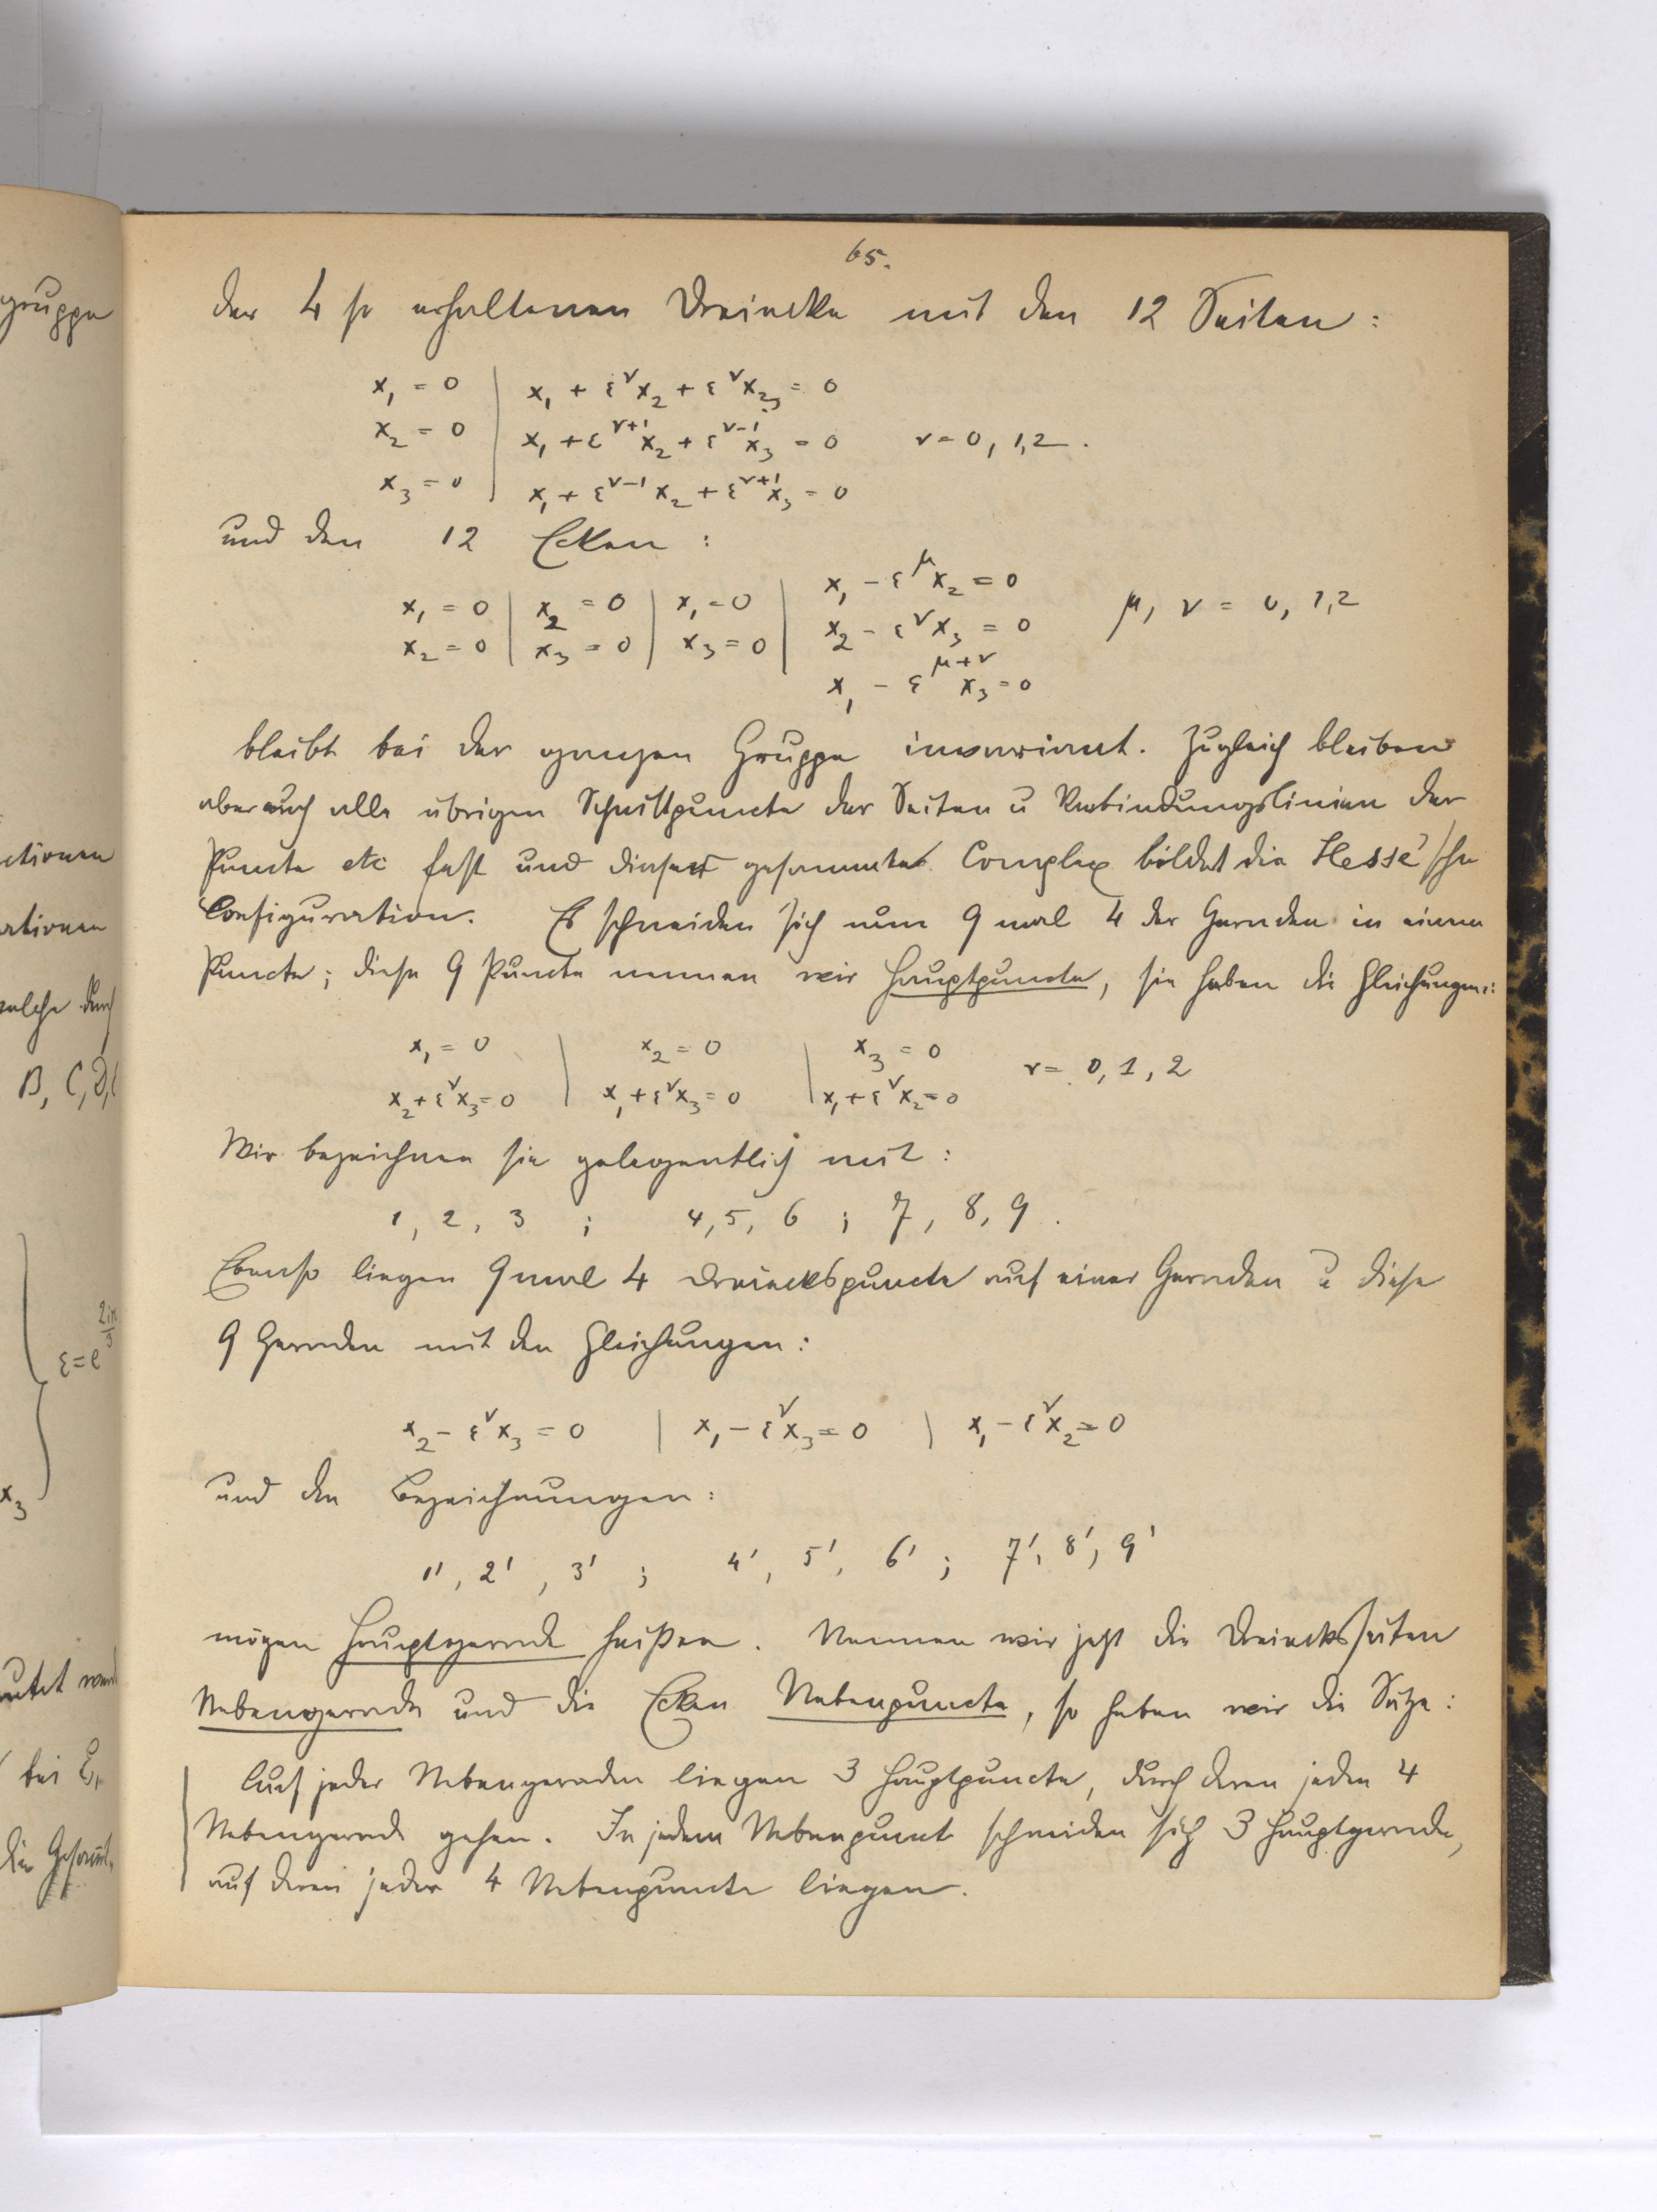 65.
der 4 so erhaltenen Dreiecke mit den 12 Seiten:
x₁ = 0 | x₁ + ε^ν x₂ + ε^ν x₃ = 0
x₂ = 0 | x₁ + ε^{ν+1} x₂ + ε^{ν-1} x₃ = 0 ν = 0, 1, 2.
x₃ = 0 | x₁ + ε^{ν-1} x₂ + ε^{ν+1} x₃ = 0
und den 12 Ecken:
x₁ = 0 | x₂ = 0 | x₁ = 0 | x₁ - ε^μ x₂ = 0
x₂ = 0 | x₃ = 0 | x₃ = 0 | x₂ - ε^ν x₃ = 0 μ, ν = 0, 1, 2
x₁ - ε^{μ+ν} x₃ = 0
bleibt bei der ganzen Gruppe invariant. Zugleich bleiben
aber auch alle übrigen Schnittpuncte der Seiten u Verbindungslinien der
Puncte etc fest und dieser gesammte Complex bildet die Hesse'sche
Configuration. Es schneiden sich nun 9 mal 4 der Geraden in einem
Puncte; diese 9 Puncte nennen wir Hauptpuncte, sie haben die Gleichungen:
x₁ = 0 | x₂ = 0 | x₃ = 0
x₂ + ε^ν x₃ = 0 | x₁ + ε^ν x₃ = 0 | x₁ + ε^ν x₂ = 0 ν = 0, 1, 2
Wir bezeichnen sie gelegentlich mit:
1, 2, 3 ; 4, 5, 6 ; 7, 8, 9.
Ebenso liegen 9 mal 4 Dreieckspuncte auf einer Geraden u diese
9 Geraden mit den Gleichungen:
x₂ - ε^ν x₃ = 0 | x₁ - ε^ν x₃ = 0 | x₁ - ε^ν x₂ = 0
und den Bezeichnungen:
1', 2', 3' ; 4', 5', 6' ; 7', 8', 9'
mögen Hauptgerade heißen. Nennen wir jetzt die Dreiecksseiten
Nebengerade und die Ecken Nebenpuncte, so haben wir die Sätze:
Auf jeder Nebengeraden liegen 3 Hauptpuncte, durch deren jeden 4
Nebengerade gehen. In jedem Nebenpunct schneiden sich 3 Hauptgerade,
auf deren jeder 4 Nebenpuncte liegen.